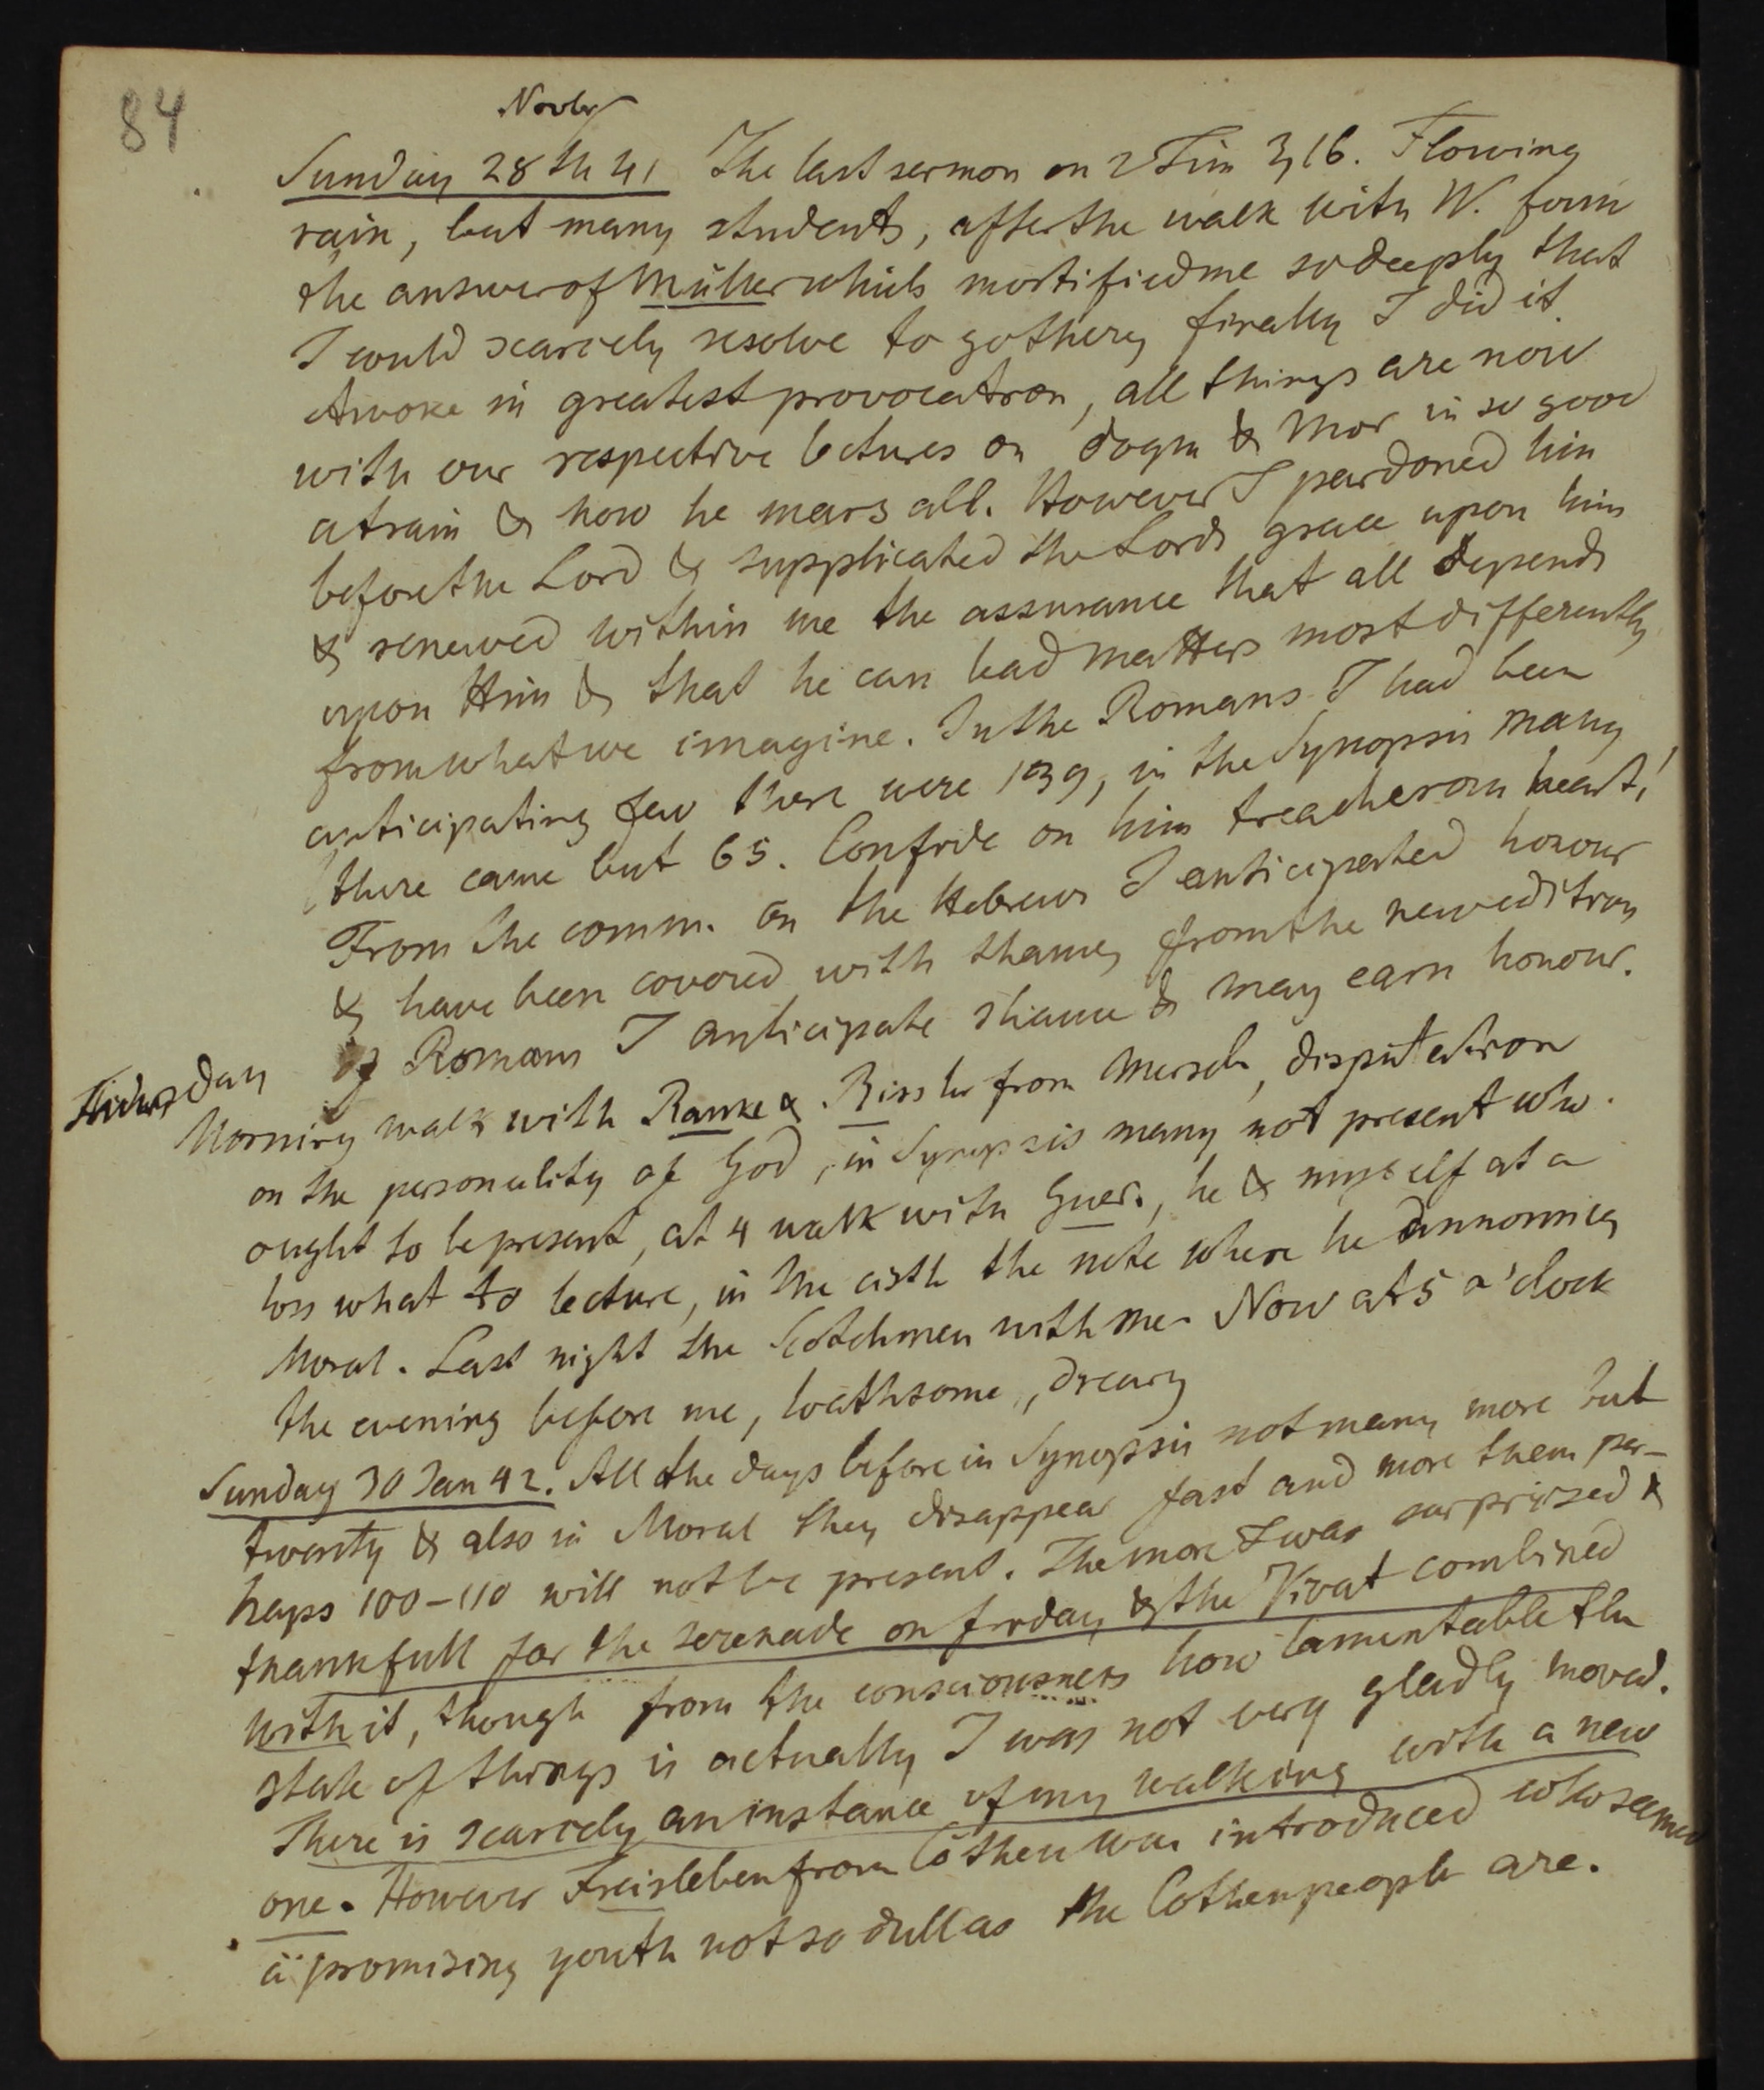 84
Novbr
Sunday 28th 41 The last sermon on 2 Tim 3, 16. Flowing
rain, but many students, after the walk with W. foun
the answer of Müller which mortified me so deeply that
I could scarcely resolve to go there, finally I did it.
Awoke in greatest provocation, all things are now
with our respective lectures on dogm & Mor in so good
a train & now he mars all. However I pardoned him
before the Lord & supplicated the Lords grace upon him
& renewed within me the assurance that all depends
upon Him & that he can lead matters most differently
from what we imagine. In the Romans I had been
anticipating few there were 139, in the Synopsis many
there came but 65. Confide on him treacherous heart!
From the comm. on the Hebrews I anticipated honour
& have been covered with shame, from the new edition
of Romans I anticipate shame & may earn honour.
Thursday
Morning walk with Ranke & Rissler from Merseb, disputation
on the personality of God, in Synopsis many not present who
ought to be present, at 4 walk with Guer., he & myself at a
loss what to lecture, in the the note where he announces
Moral. Last night the Scotchmen with me. Now at 5 o'clock
the evening before me, loathsome, dreary
Sunday 30 Jan 42. All the days before in Synopsis not many more but
twenty & also in Moral they disappear fast and more them per-
haps 100-110 will not be present. The more I was surprized &
thankfull for the serenade on friday & the Vivat combined
with it, though from the consciousness how lamentable the
state of things is actually I was not very gladly moved.
There is scarcely an instance of my walking with a new
one. However Freisleben from Cöthen was introduced who seemed
a promising youth not so dull as the Cothenpeople are.